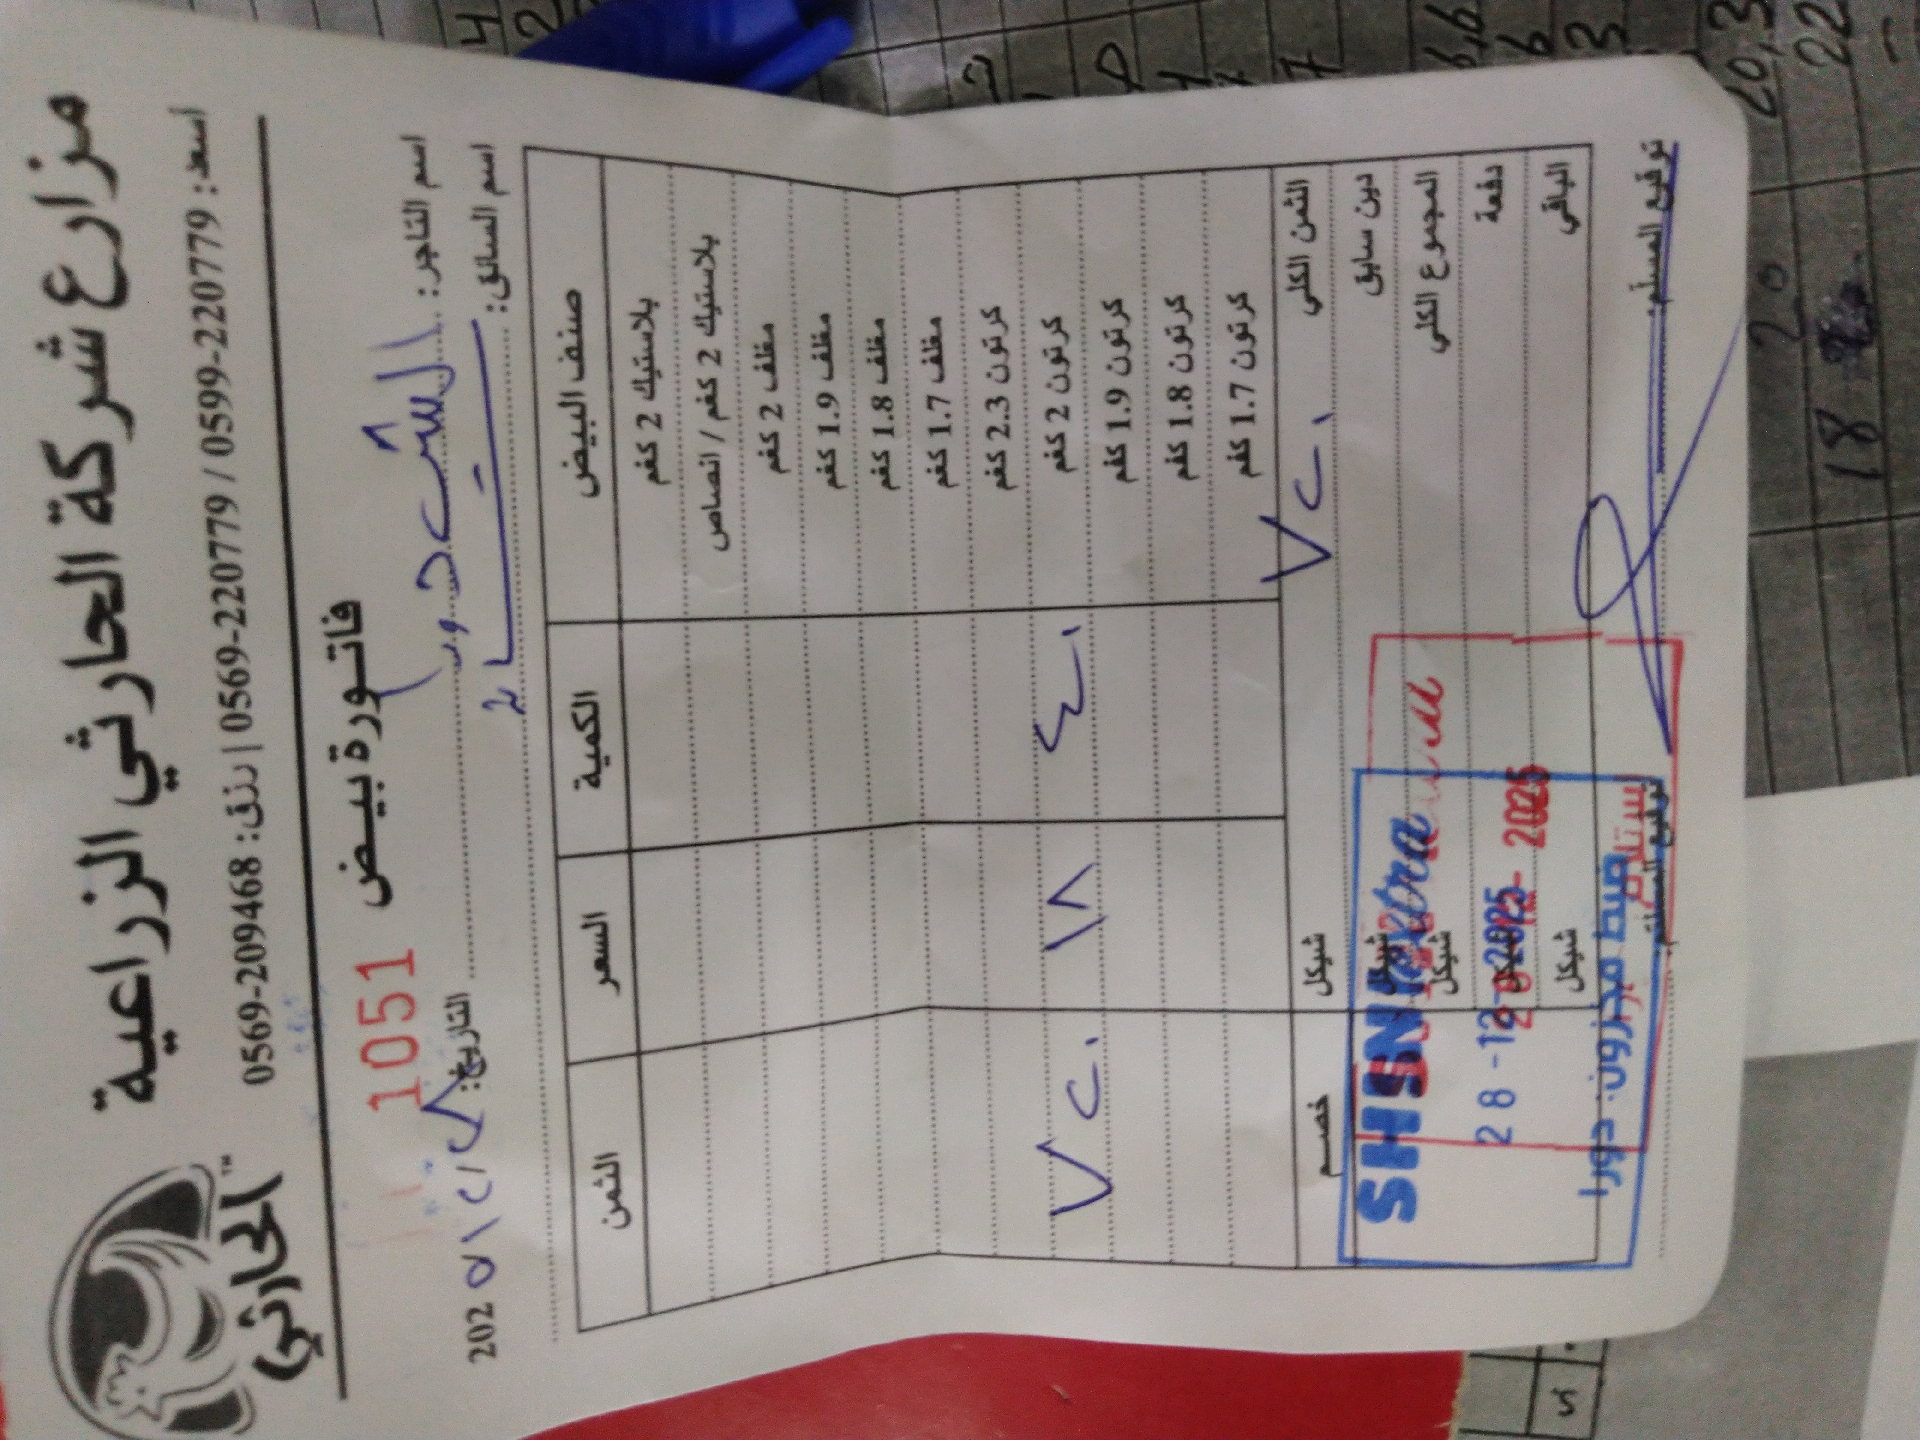 مزارع شركة الحارثي الزراعية
الحارثي™
اسعد: 0599-220779 / 0569-220779 | رزق: 0569-209468
فاتورة بيض
11051
اسم التاجر: الشني دورا
التاريخ: ٢٨/١٢/202٥
اسم السائق:
صنف البيض الكمية السعر الثمن
بلاستيك 2 كغم
بلاستيك 2 كغم / انصاص
مغلف 2 كغم
مغلف 1.9 كغم
مغلف 1.8 كغم
مغلف 1.7 كغم
كرتون 2.3 كغم
كرتون 2 كغم ٤٠ ١٨ ٧٢٠
كرتون 1.9 كغم
كرتون 1.8 كغم
كرتون 1.7 كغم
الثمن الكلي ٧٢٠ شيكل خصم
دين سابق شيكل
المجموع الكلي شيكل
دفعة شيكل
الباقي شيكل
توقيع المسلم: توقيع المستلم:
SHSNI extra
28 -12- 2025
ضبط مخزون. دورا
2025
استلام